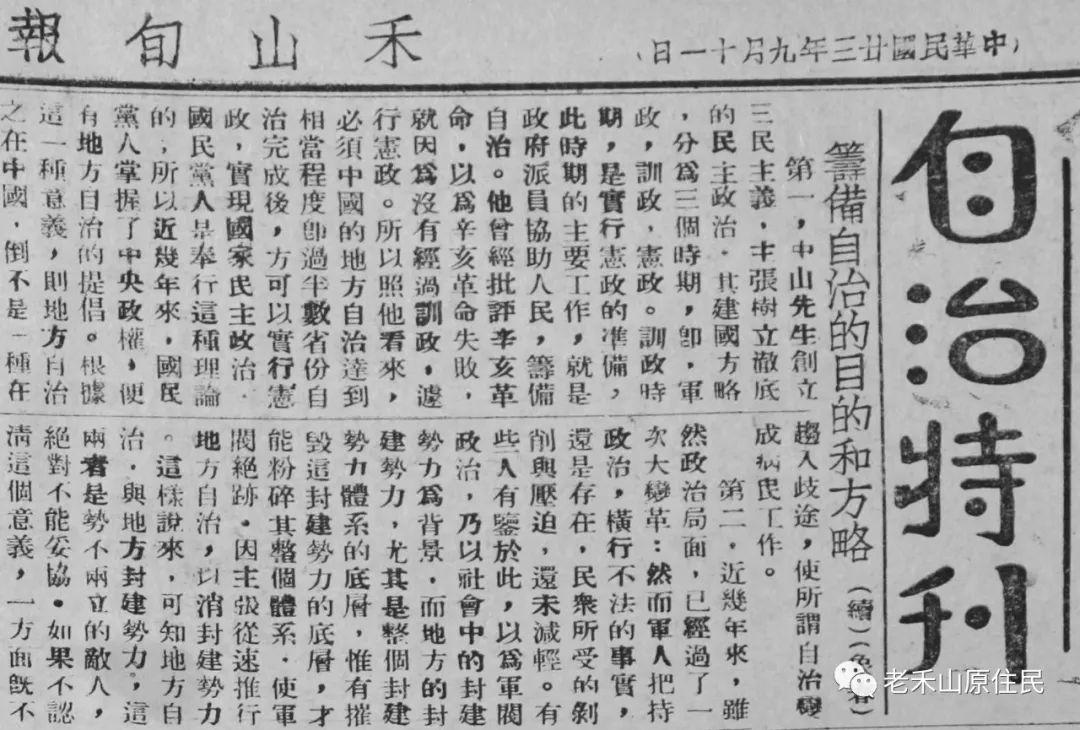 禾山旬報
（中華民國廿三年九月十一日）
自治特刊
籌備自治的目的和方略（續）
第一，中山先生創立
三民主義，主張樹立徹底
的民主政治．其建國方略
，分爲三個時期，卽，軍
政，訓政，憲政。訓政時
期，是實行憲政的準備，
此時期的主要工作，就是
政府派員協助人民，籌備
自治。他曾經批評辛亥革
命，以爲辛亥革命失敗，
就因爲沒有經過訓政，遽
行憲政。所以照他看來，
必須中國的地方自治達到
相當程度卽過半數省份自
治完成後，方可以實行憲
政，實現國家民主政治．
國民黨人是奉行這種理論
的；所以近幾年來，國民
黨人掌握了中央政權，便
有地方自治的提倡。根據
這一種意義，則地方自治
之在中國，倒不是一種在
趨入歧途，使所謂自治變
成病民工作。
第二，近幾年來，雖
然政治局面，已經過了一
次大變革：然而軍人把持
政治，橫行不法的事實，
還是存在，民衆所受的剝
削與壓迫，還未減輕。有
些人有鑒於此，以爲軍閥
政治，乃以社會中的封建
勢力爲背景．而地方的封
建勢力，尤其是整個封建
勢力體系的底層，惟有摧
毀這封建勢力的底層，才
能粉碎其整個體系．使軍
閥絕跡．因主張從速推行
地方自治，以消封建勢力
。這樣說來，可知地方自
治．與地方封建勢力，這
兩者是勢不兩立的敵人，
絕對不能妥協．如果不認
淸這個意義，一方面旣不
老禾山原住民